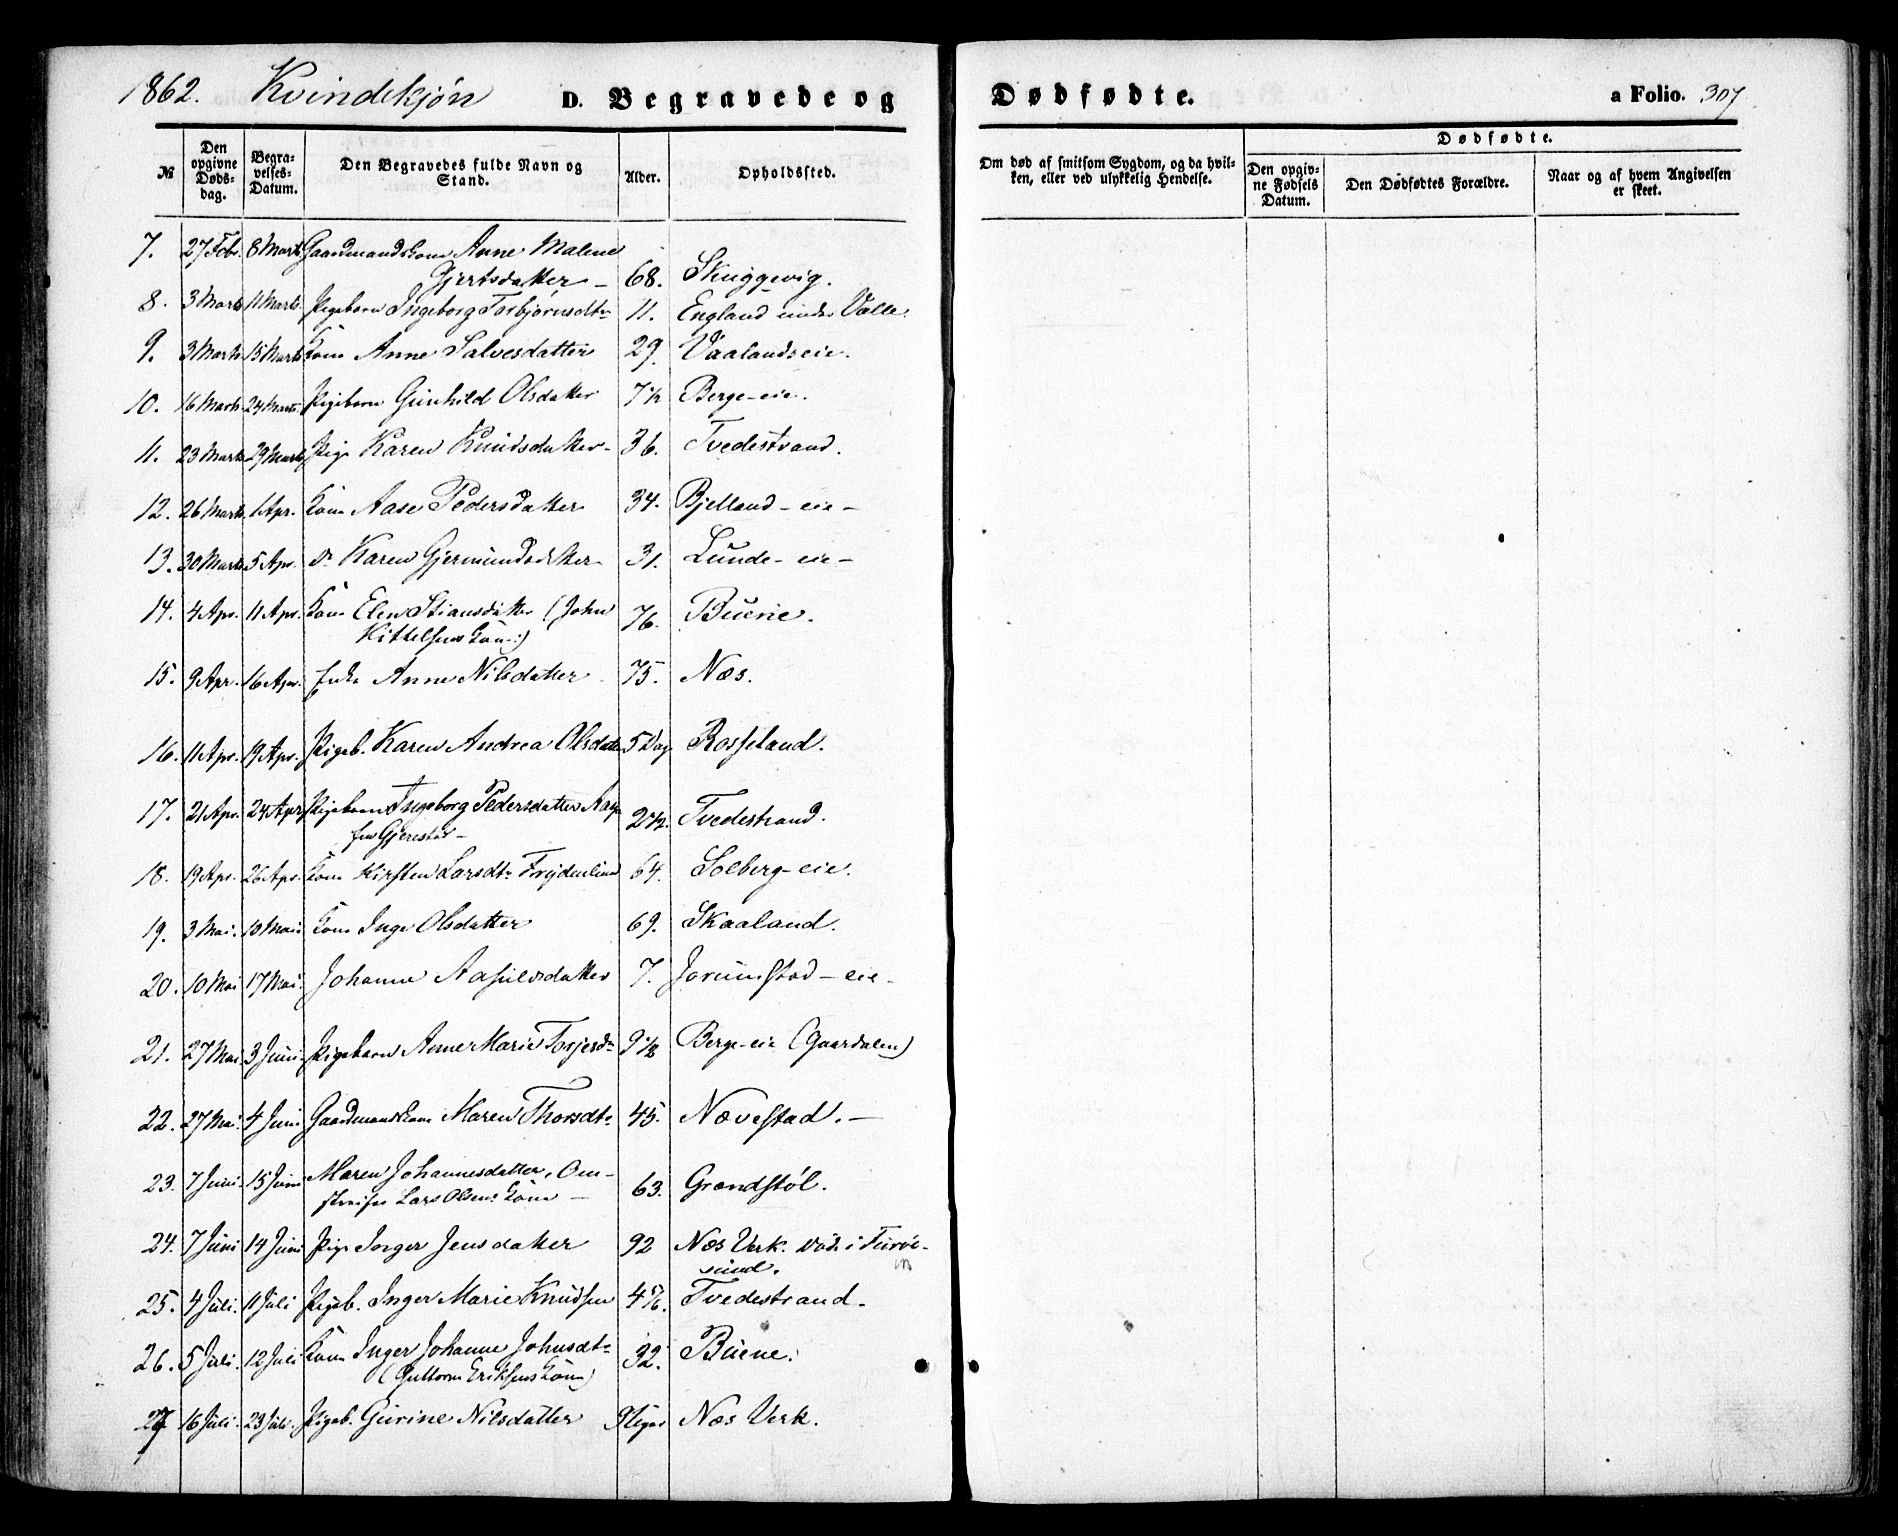 1862. Kvindekjøn D. Begravede og Dødfødte. a Folio. 307
№ Den opgivne Døds-dag. Begra-velses-Datum. Den Begravedes fulde Navn og Stand. Alder. Opholdssted. Om død af smitsom Sygdom, og da hvil-ken, eller ved ulykkelig Hendelse. Dødfødte. Den opgiv-ne Fødsels Datum. Den Dødfødtes Forældre. Naar og af hvem Angivelsen er skeet.
7. 27 Febr. 8 Marts Gaardmandskone Anne Malene
Gjertsdatter – 68. Skuggevig.
8. 3 Marts 11 Marts Pigebarn Ingeborg Torbjørnsdtr 11. England under Valle.
9. 3 Marts 15 Marts Kone Anne Salvesdatter 29. Vaalandseie.
10. 16 Marts 24 Marts Pigebarn Gunhild Olsdatter 7 1/2 Berge-eie.
11. 23 Marts 29 Marts Pige Karen Knudsdatter – 36. Tvedestrand.
12. 26 Marts 1 Apr. Kone Aase Pedersdatter 34. Bjelland – eie –
13. 30 Marts 5 Apr. do Karen Gjermundsdatter 31. Lunde – eie –
14. 4 Apr. 11 Apr. Kone Elen Stiansdatter (John
Kittelsens Kone:) 76. Buene.
15. 9 Apr. 16 Apr. Enke Anne Nilsdatter 75. Næs.
16. 11 Apr. 19 Apr. Pigeb. Karen Andrea Olsdatter 5 Dag Rosseland.
17. 21 Apr. 24 Apr. Pigebarn Ingeborg Pedersdatter Aas
fra Gjerestad – 2 1/2. Tvedestrand.
18. 19 Apr. 26 Apr. Kone Kirsten Larsdtr Frydenlund 64. Solberg-eie.
19. 3 Mai. 10 Mai. Kone Inge Olsdatter 69. Skaaland.
20. 10 Mai 17 Mai. Johanne Aasulvsdatter 7. Jorunstad – eie –
21. 27 Mai. 3 Juni. Pigebarn Anne Marie Terjesdr 9 1/2 Berge-eie (Gaardalen)
22. 27 Mai. 4 Juni Gaardmandskone Maren Thorsdtr 45. Nævestad. –
23. 7 Juni. 15 Juni Maren Johannesdatter, Om-
streifer Lars Olsens Kone – 63. Grændstøl.
24. 7 Juni 14 Juni Pige Inger Jensdatter 92 Næs Verk. død i Furøe-
sund.
25. 4 Juli. 11 Juli Pigeb. Inger Marie Knudsen 4 5/6. Tvedestrand.
26. 5 Juli. 12 Juli Kone Inger Johanne Johnsdtr
(Guttorm Eriksens Kone) 32. Buene.
27 16 Juli. 23 Juli. Pigeb. Gurine Nilsdatter 9 Uger Næs Verk.